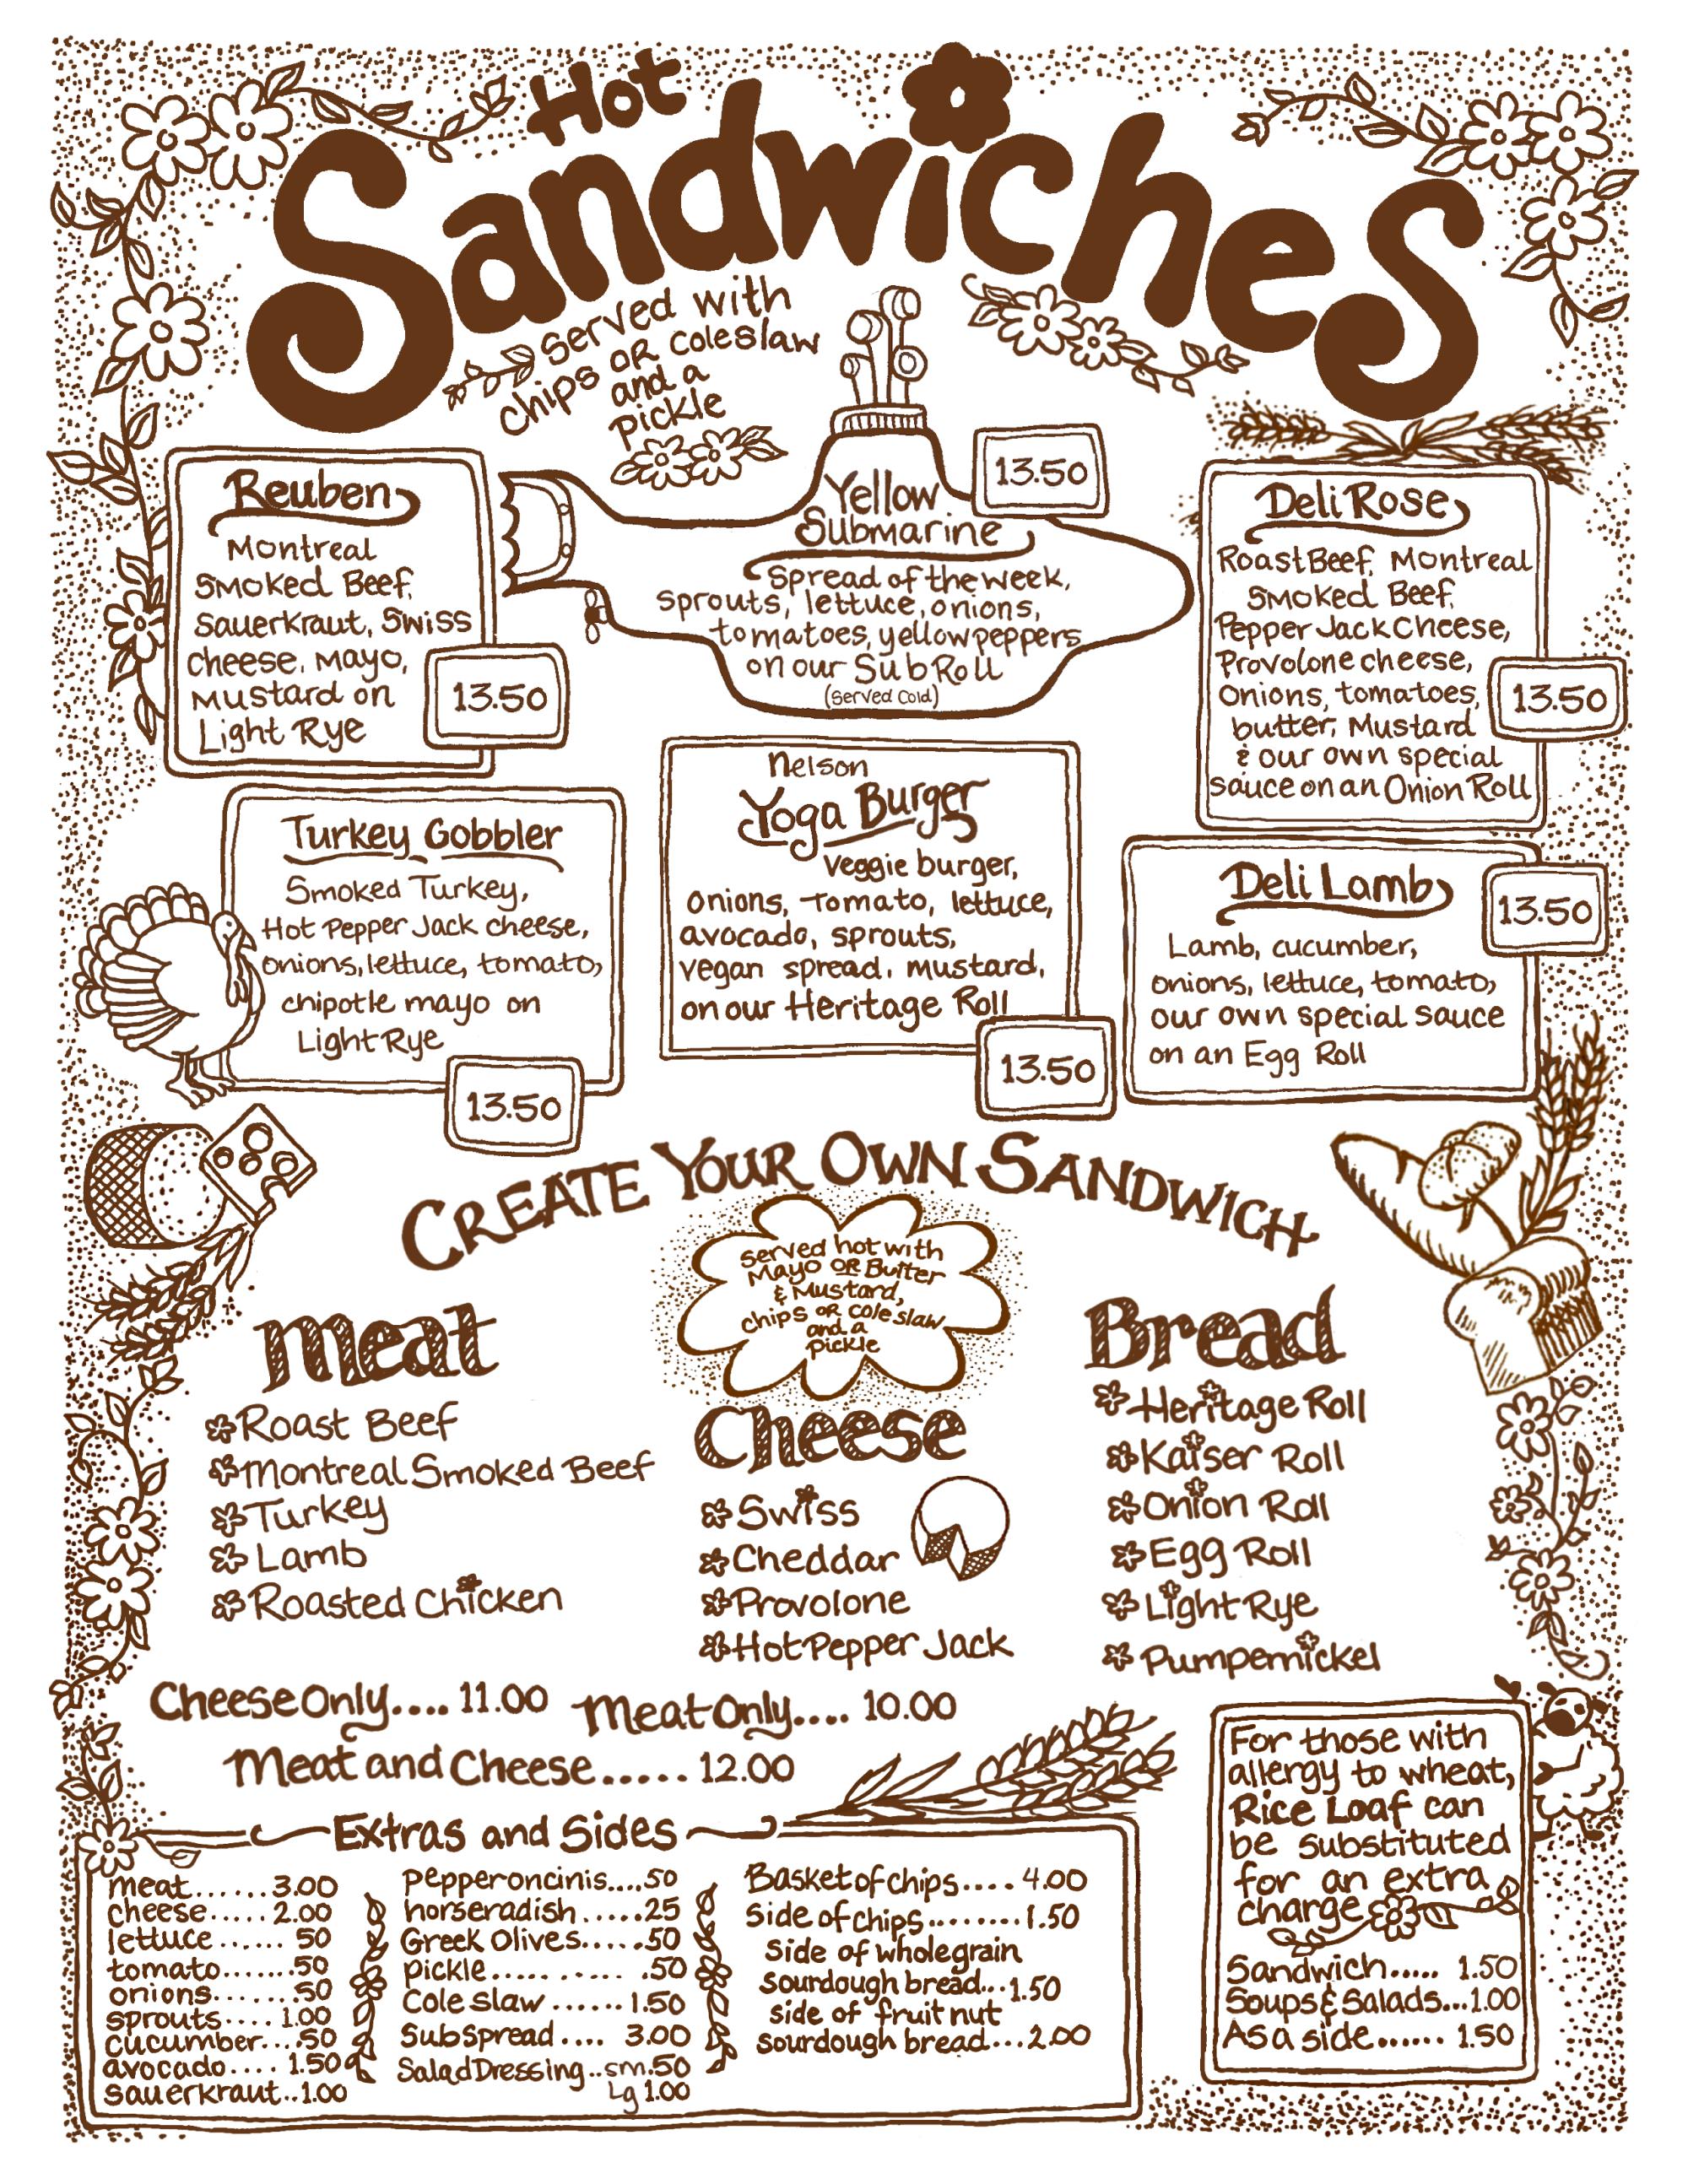 Hot
Sandwiches
Served with
chips OR coleslaw
and a
pickle
Reuben
Montreal
Smoked Beef,
Sauerkraut, Swiss
cheese, Mayo,
Mustard on
Light Rye
13.50
Yellow
Submarine
13.50
Spread of the week,
Sprouts, lettuce, onions,
tomatoes, yellow peppers
on our Sub Roll
(Served Cold)
Deli Rose
Roast Beef, Montreal
Smoked Beef,
Pepper Jack Cheese,
Provolone cheese,
Onions, tomatoes,
butter, Mustard
& our own special
sauce on an Onion Roll
13.50
Turkey Gobbler
Smoked Turkey,
Hot Pepper Jack cheese,
onions, lettuce, tomato,
chipotle mayo on
Light Rye
13.50
Nelson
Yoga Burger
Veggie burger,
onions, tomato, lettuce,
avocado, sprouts,
vegan spread, mustard,
on our Heritage Roll
13.50
Deli Lamb
13.50
Lamb, cucumber,
onions, lettuce, tomato,
our own special sauce
on an Egg Roll
CREATE YOUR OWN SANDWICH
served hot with
Mayo OR Butter
& Mustard,
chips OR cole slaw
and a
pickle
Meat
Roast Beef
Montreal Smoked Beef
Turkey
Lamb
Roasted Chicken
Cheese
Swiss
Cheddar
Provolone
Hot Pepper Jack
Bread
Heritage Roll
Kaiser Roll
Onion Roll
Egg Roll
Light Rye
Pumpernickel
Cheese Only.... 11.00 Meat Only.... 10.00
Meat and Cheese..... 12.00
Extras and Sides
meat......3.00
cheese.....2.00
lettuce...... 50
tomato.......50
onions.......50
sprouts.... 1.00
cucumber....50
avocado.... 1.50
sauerkraut..1.00
pepperoncinis....50
horseradish.....25
Greek Olives.....50
pickle.......... .50
Cole slaw......1.50
Sub Spread.... 3.00
Salad Dressing..sm.50
Lg 1.00
Basket of chips.... 4.00
Side of chips........1.50
Side of whole grain
sourdough bread...1.50
side of fruit nut
sourdough bread...2.00
For those with
allergy to wheat,
Rice Loaf can
be substituted
for an extra
charge
Sandwich..... 1.50
Soups & Salads...1.00
As a side...... 1.50